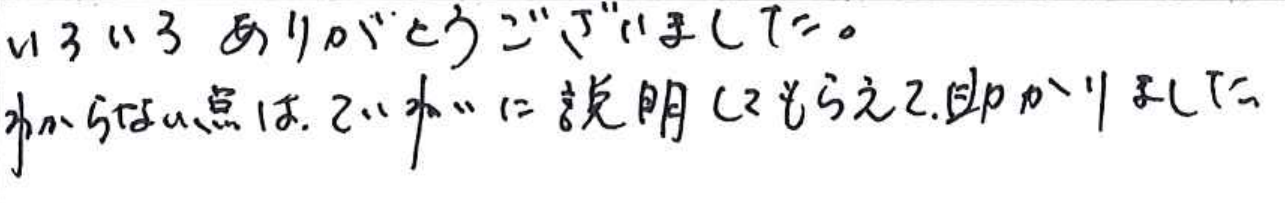 いろいろ ありがとうございました。
わからない点は、ていねいに説明してもらえて、助かりました